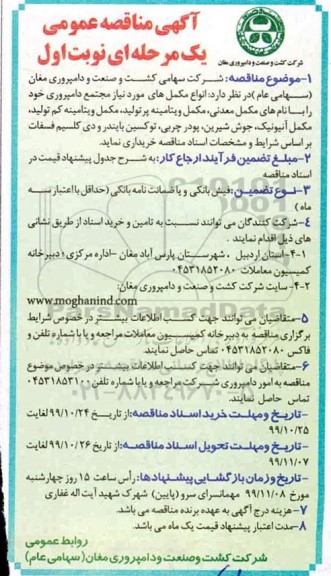 آگهی مناقصه عمومی
یک مرحله ای نوبت اول
شرکت کشت و صنعت و دامپروری مغان
۱-موضوع مناقصه: شرکت سهامی کشت و صنعت و دامپروری مغان
(سهامی عام) در نظر دارد: انواع مکمل های مورد نیاز مجتمع دامپروری خود
را با نام های مکمل معدنی، مکمل ویتامینه پرتولید، مکمل ویتامینه کم تولید،
مکمل آنیونیک، جوش شیرین، پودر چربی، توکسین بایندر و دی کلسیم فسفات
بر اساس شرایط و مشخصات اسناد مناقصه خریداری نماید.
۲-مبلغ تضمین فرآیند ارجاع کار: به شرح جدول پیشنهاد قیمت در
اسناد مناقصه
۳-نوع تضمین: فیش بانکی و یا ضمانت نامه بانکی (حداقل با اعتبار سه
ماه)
۴-شرکت کنندگان می توانند نسبت به تامین و خرید اسناد از طریق نشانی
های ذیل اقدام نمایند.
۴-۱-استان اردبیل، شهرستان پارس آباد مغان -اداره مرکزی؛ دبیرخانه
کمیسیون معاملات ۰۴۵۳۱۸۵۲۰۸۰
۴-۲-سایت شرکت کشت و صنعت و دامپروری مغان:
www.moghanind.com
۵-متقاضیان می توانند جهت کسب اطلاعات بیشتر در خصوص شرایط
برگزاری مناقصه به دبیرخانه کمیسیون معاملات مراجعه و یا با شماره تلفن و
فاکس ۰۴۵۳۱۸۵۲۰۸۰ تماس حاصل نمایند.
۶-متقاضیان می توانند جهت کسب اطلاعات بیشتر در خصوص موضوع
مناقصه به امور دامپروری شرکت مراجعه و یا با شماره تلفن ۰۴۵۳۱۸۵۳۱۰۰
تماس حاصل نمایند.
-تاریخ و مهلت خرید اسناد مناقصه: از تاریخ ۹۹/۱۰/۲۴ لغایت
۹۹/۱۰/۲۵
-تاریخ و مهلت تحویل اسناد مناقصه: از تاریخ ۹۹/۱۰/۲۶ لغایت
۹۹/۱۱/۰۷
-تاریخ و زمان بازگشایی پیشنهادها: رأس ساعت ۱۵ روز چهارشنبه
مورخ ۹۹/۱۱/۰۸ مهمانسرای سرو (پایین) شهرک شهید آیت اله غفاری
۷-هزینه درج آگهی به عهده برنده مناقصه می باشد.
۸-مدت اعتبار پیشنهاد قیمت یک ماه می باشد.
روابط عمومی
شرکت کشت وصنعت ودامپروری مغان(سهامی عام)